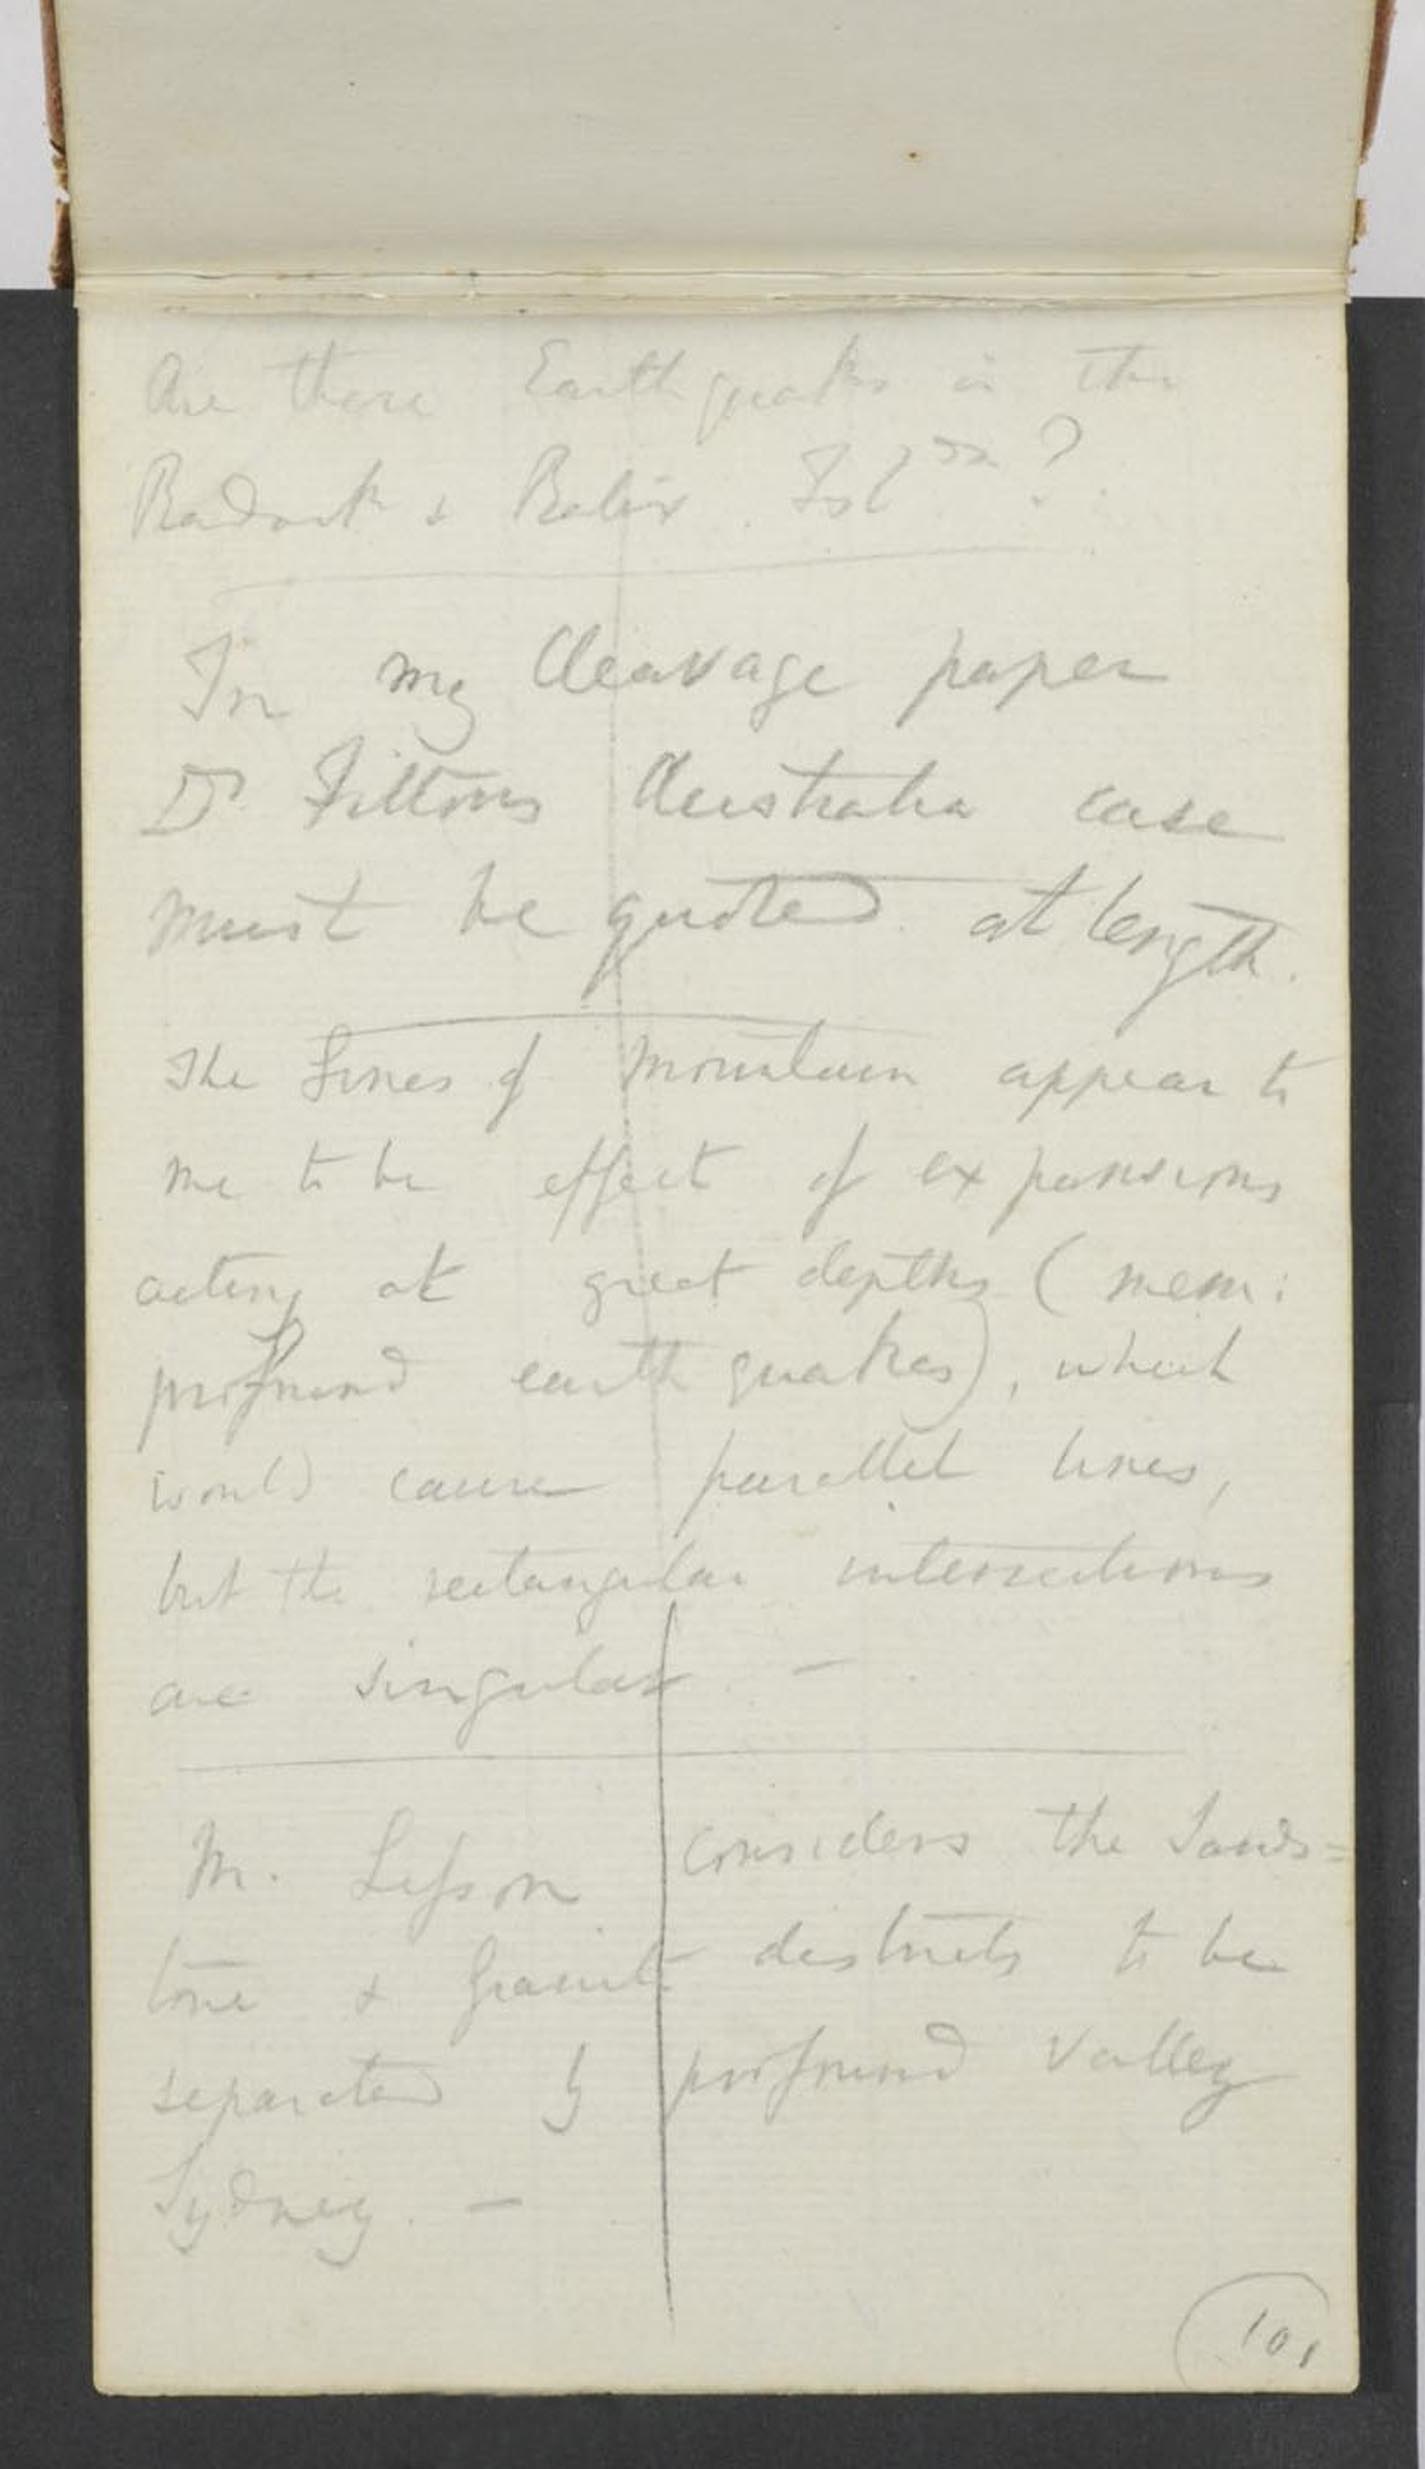 Are there Earthquakes in the
Radack & Ralix Isl^ds?
In my Cleavage paper
D^r Fittons Australia case
must be quoted at length.
The Lines of Mountain appear to
me to be effect of expansions
acting at great depths (mem:
profound earthquakes), which
would cause parallel lines,
but the rectangular intersections
are singular. —
M. Lesson considers the Sands=
tone & Granite districts to be
separated by profound valley
Sydney. —
101